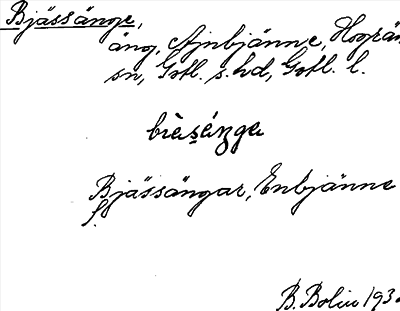 Bjässänge,
äng, Ajnbjänne, Hogrän
sn, Gotl. s. hd, Gotl. l.
bìȧșánga
Bjässängar, Enbjänne
f.
B. Bolin 193